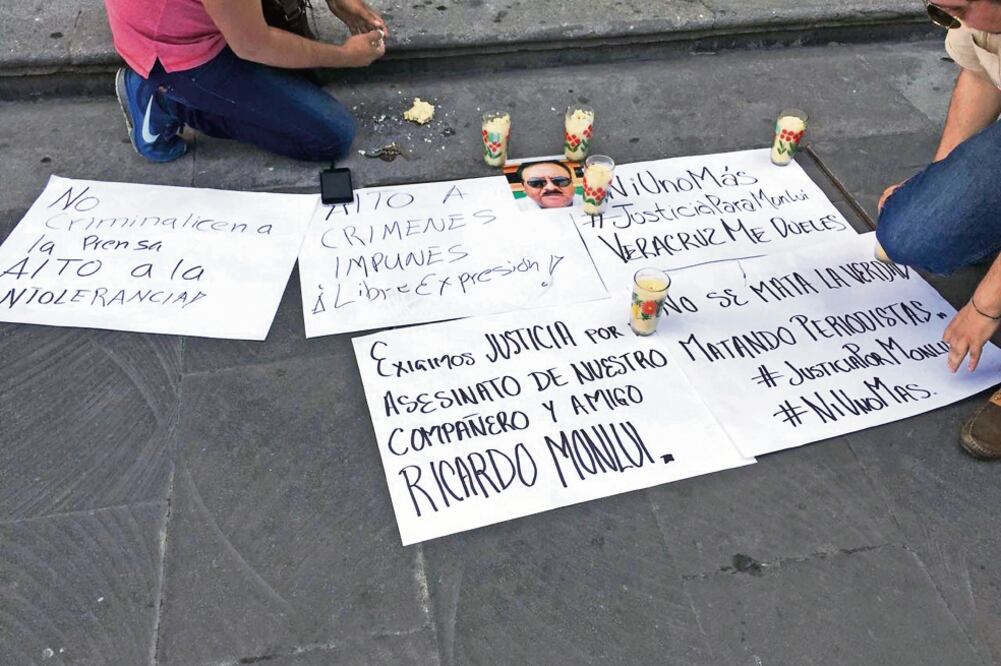 No
Criminalicen a
la Prensa
ALTO a la
INTOLERANCIA!
ALTO A
CRIMENES
IMPUNES
¡Libre Expresión!
#NiUnoMás
#JusticiaParaMonlui
VERACRUZ Me DUELES
EXIGIMOS JUSTICIA POR
ASESINATO DE NUESTRO
COMPAÑERO Y AMIGO
RICARDO MONLUI.
NO SE MATA LA VERDAD
MATANDO PERIODISTAS.
#JUSTICIAPORMONLUI
#NIUNOMAS.